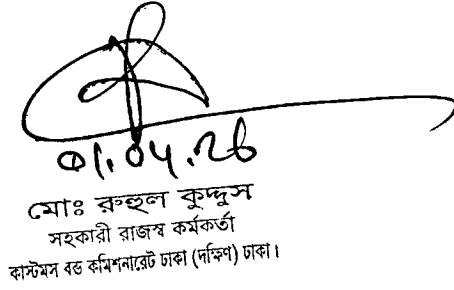 01.04.26
মোঃ রুহুল কুদ্দুস
সহকারী রাজস্ব কর্মকর্তা
কাস্টমস বন্ড কমিশনারেট ঢাকা (দক্ষিণ) ঢাকা।